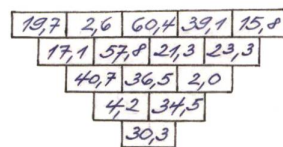 19,7 2,6 60,4 39,1 15,8
17,1 57,8 21,3 23,3
40,7 36,5 2,0
4,2 34,5
30,3